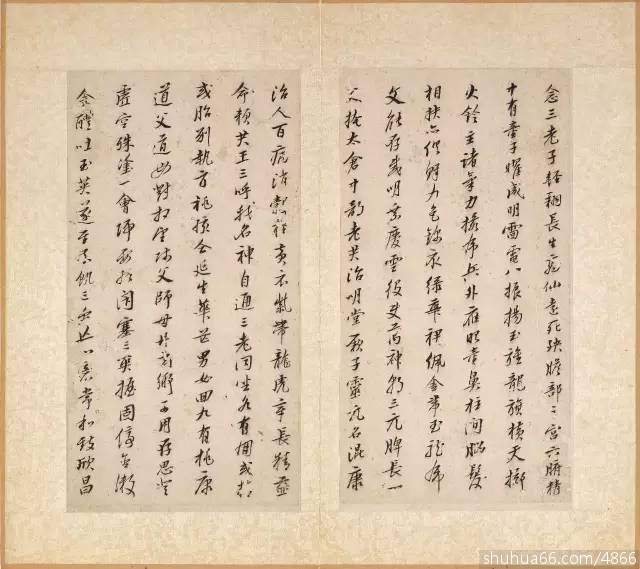 念三老子輕翔長生高仙遠死殃膽部之宮六腑精
中有童子曜威明雷電八振揚玉旌龍旗橫天擲
火鈴主諸氣力攝虎兵外應眼童鼻柱間腦髮
相扶亦俱鮮九色錦衣綠華裙佩金帶玉龍虎
文能存威明乘慶雲役使萬神朝三元脾長一
尺掩太倉中部老君治明堂厥字靈元名混康
治人百病消穀糧黃衣紫帶龍虎章長精益
命賴君王三呼我名神自通三老同坐各有朋或精
或胎別執方桃孩合延生華芒男女回九有桃康
道父道母對相望師父師母丹玄鄉可用存思登
虛空殊塗一會歸要終閉塞三關握固停含漱
金醴吞玉英遂至不飢三蟲亡心意常和致欣昌
shuhua66.com/4866